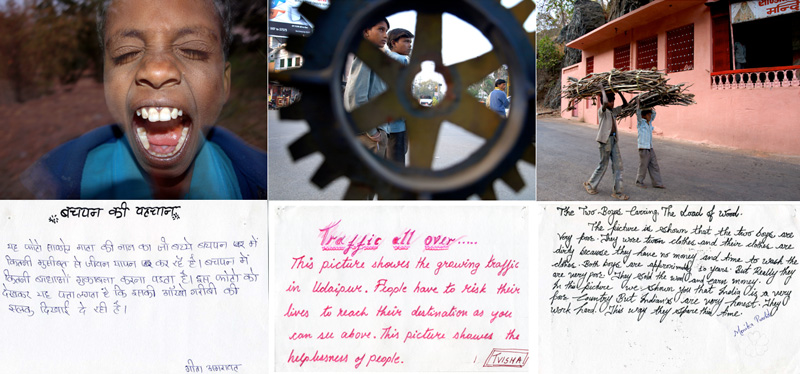 बचपन की पहचान
यह फोटो माता की का जो बच्चे बचपन में
कितनी मुसीबत से जीवन यापन कर रहे है। बचपन में
कितनी मुकाबला करना पडता है। इस फोटो को
देखकर यह पता लगता है कि इसकी आँखो गरीबी की
झलक दिखाई दे रही है।
Traffic all over.....
This picture showes the growing traffic
in Udaipur. People have to risk their
lives to reach their destination as you
can see above. This picture shawes the
helplessness of people.
TVISHA
The Two Boyes Carring The Load of Wood.
The picture is shown that the two boys are
very poor. They wore clothes and their clothes are
dirty because they have no money and time to wash the
clothes. Both boys are years. But Really they
are very poor. They sold the wood and earn money.
In this picture we shown you that India is a very
poor Country But Indian's are very honest. They
work hard. This way they this time.